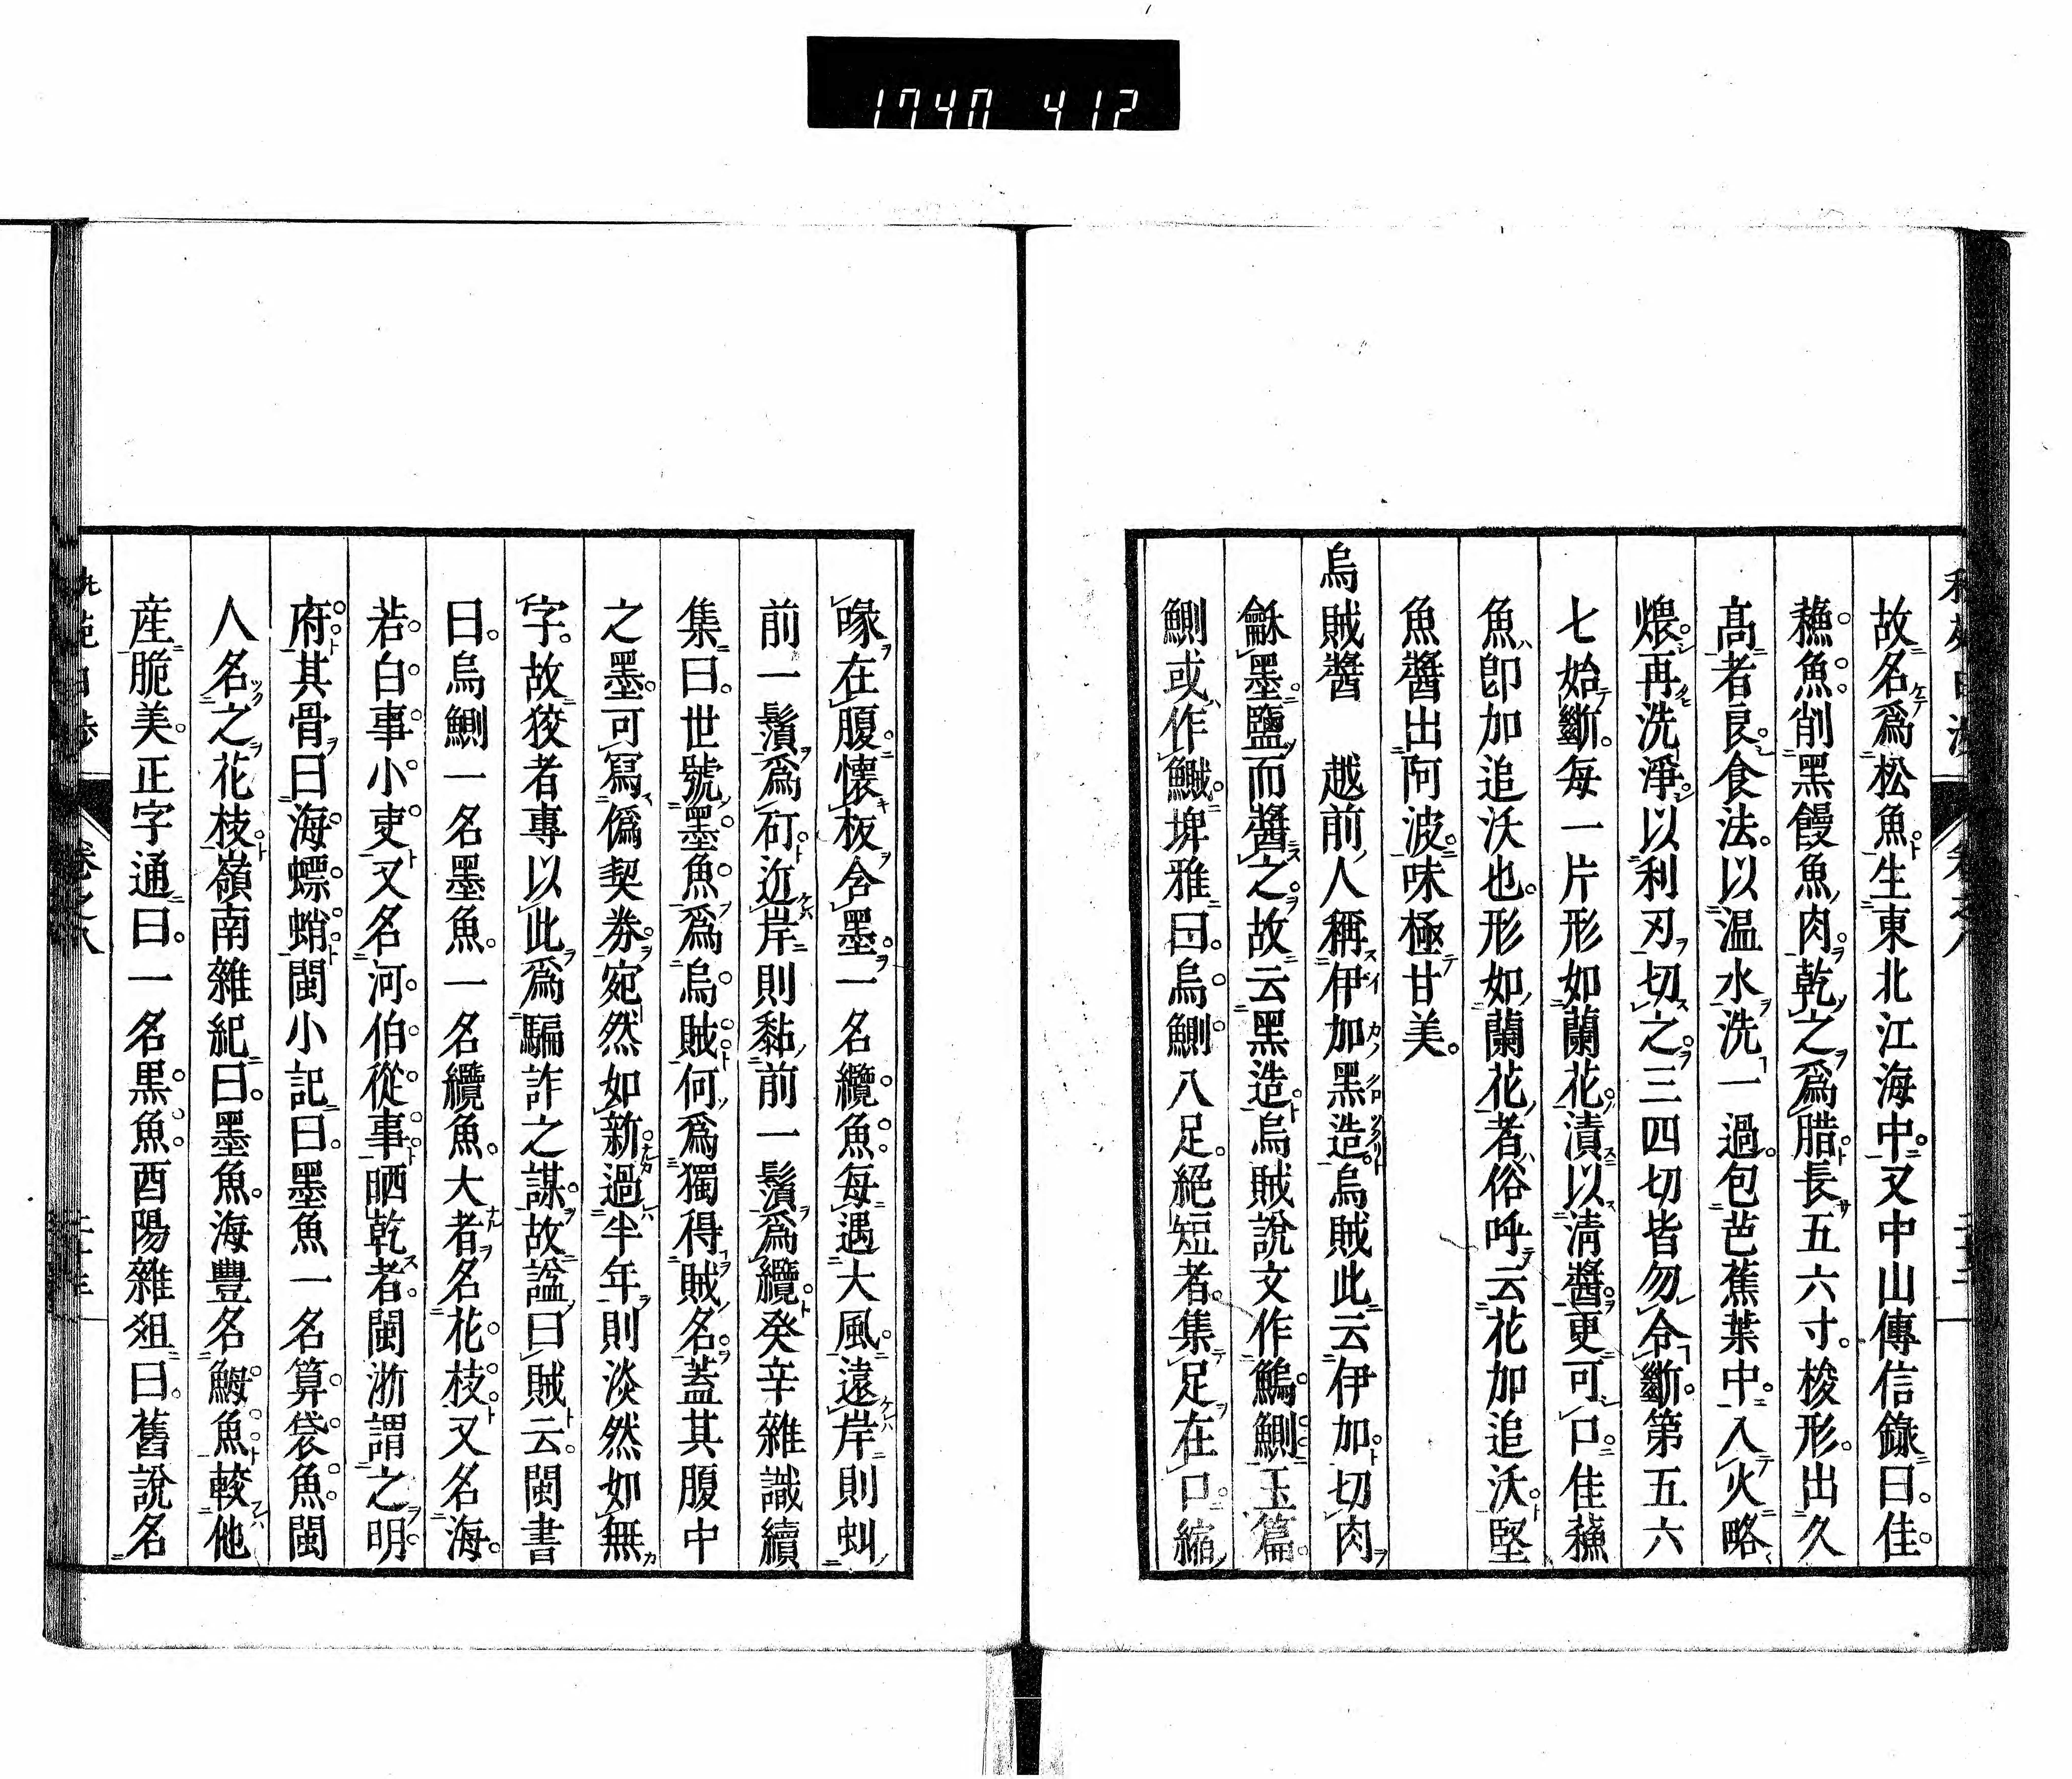 1740 412
故名爲松魚生東北江海中又中山傳信錄曰佳
蘓魚削黑饅魚肉乾之爲腊長五六寸梭形出久
髙者良食法以温水洗一過包芭蕉葉中入火略
煨再洗淨以利刃切之三四切皆勿令斷第五六
七始斷每一片形如蘭花漬以清醬更可口佳蘓
魚卽加追沃也形如蘭花者俗呼云花加追沃堅
魚醬出阿波味極甘美
烏賊醬　越前人稱伊加黑造烏賊此云伊加切肉
龢墨鹽而醬之故云黑造烏賊說文作鰞鰂玉篇
鰂或作鱡埤雅曰烏鰂八足絕短者集足在口縮
喙在腹懷板含墨一名纜魚每遇大風遠岸則虯
前一鬚爲矴近岸則黏前一鬚爲纜癸辛雜識續
集曰世號墨魚爲烏賊何爲獨得賊名蓋其腹中
之墨可寫僞契券宛然如新過半年則淡然如無
字故狡者專以此爲騙詐之謀故諡曰賊云閩書
曰烏鰂一名墨魚一名纜魚大者名花枝又名海
若白事小吏又名河伯從事晒乾者閩浙謂之明
府其骨曰海螵蛸閩小記曰墨魚一名算袋魚閩
人名之花枝嶺南雜紀曰墨魚海豐名𩶤魚較他
産脆美正字通曰一名黒魚酉陽雜俎曰舊說名
卷之八